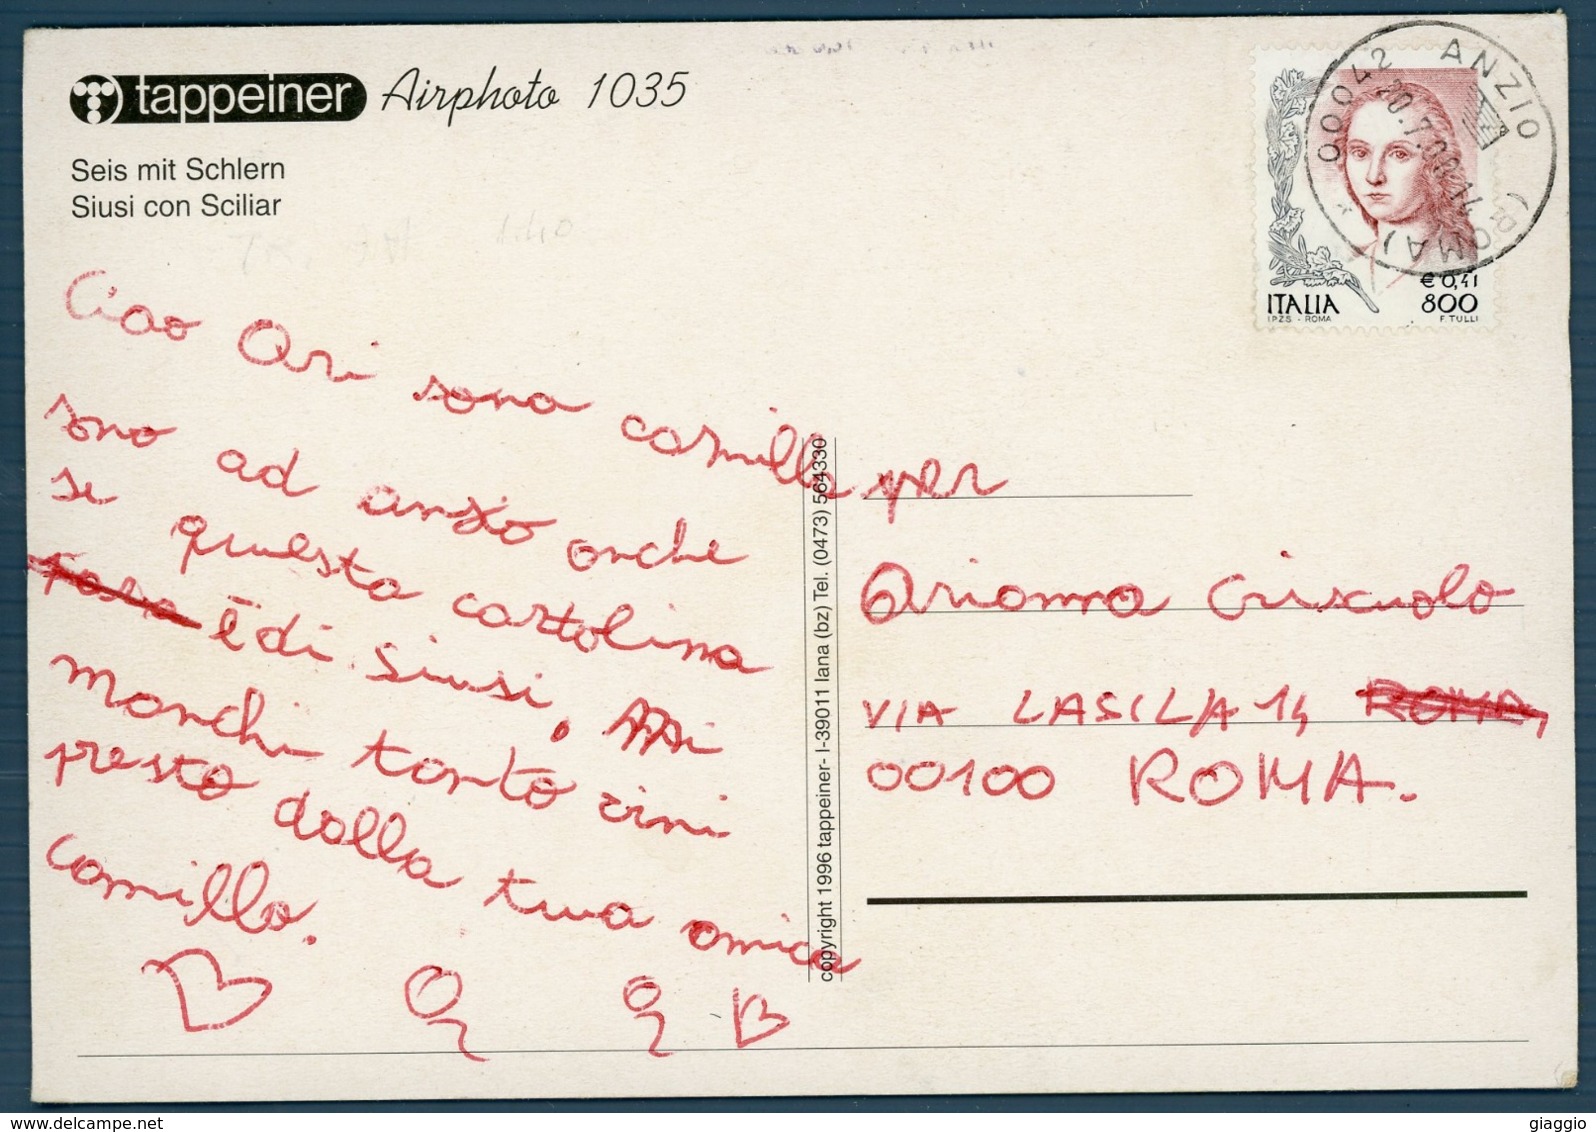 tappeiner Airphoto 1035
Seis mit Schlern
Siusi con Sciliar
00042 ANZIO (ROMA) *
ITALIA
€ 0,41
800
IPZS - ROMA
F. TULLI
Ciao Ari sono camilla
sono ad anzio anche
se questa cartolina
è di Siusi, Mi
manchi tanto vini
presto dalla tua amica
camilla.
per
Arianna Criscuolo
VIA LASILA 14 ROMA,
00100 ROMA.
copyright 1996 tappeiner- I-39011 lana (bz) Tel. (0473) 564330
giaggio